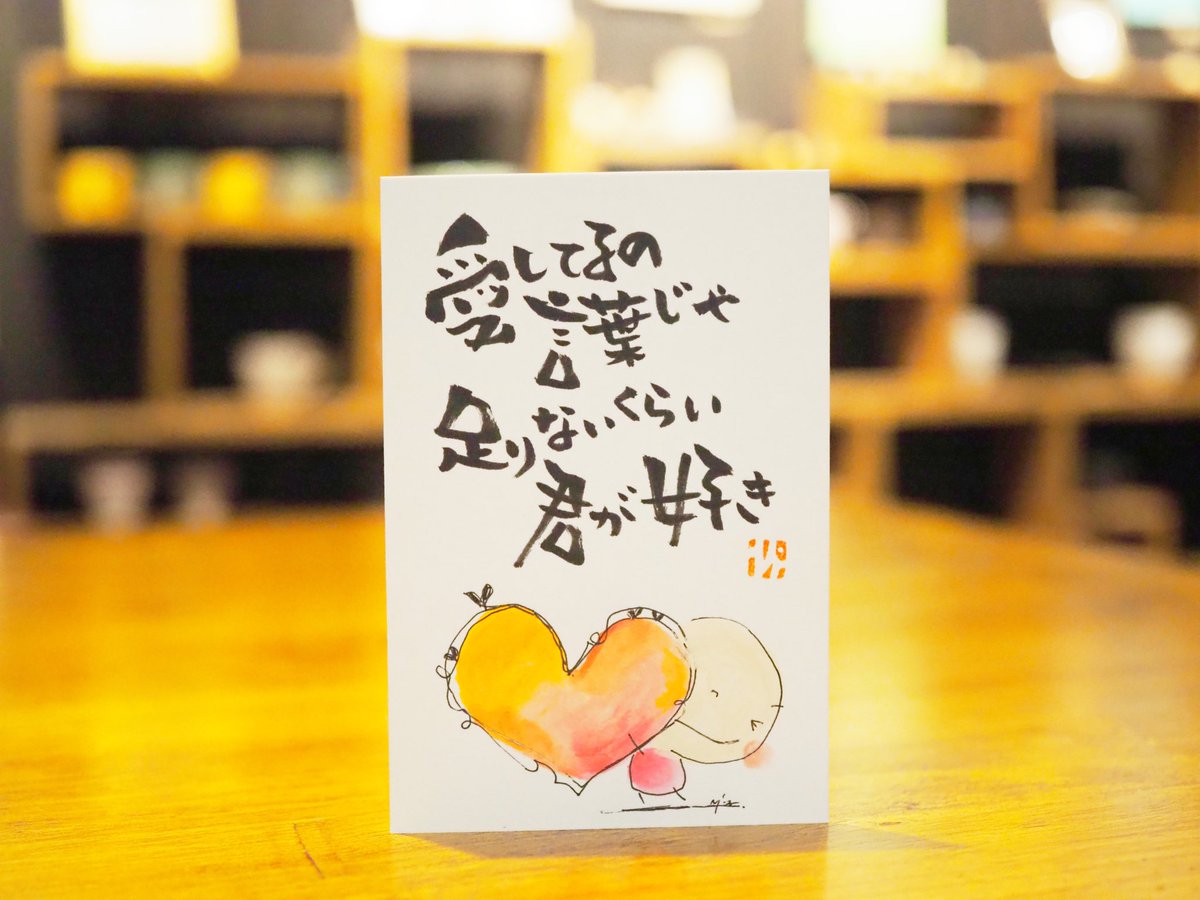 愛してるの
言葉じゃ
足りないくらい
君が好き